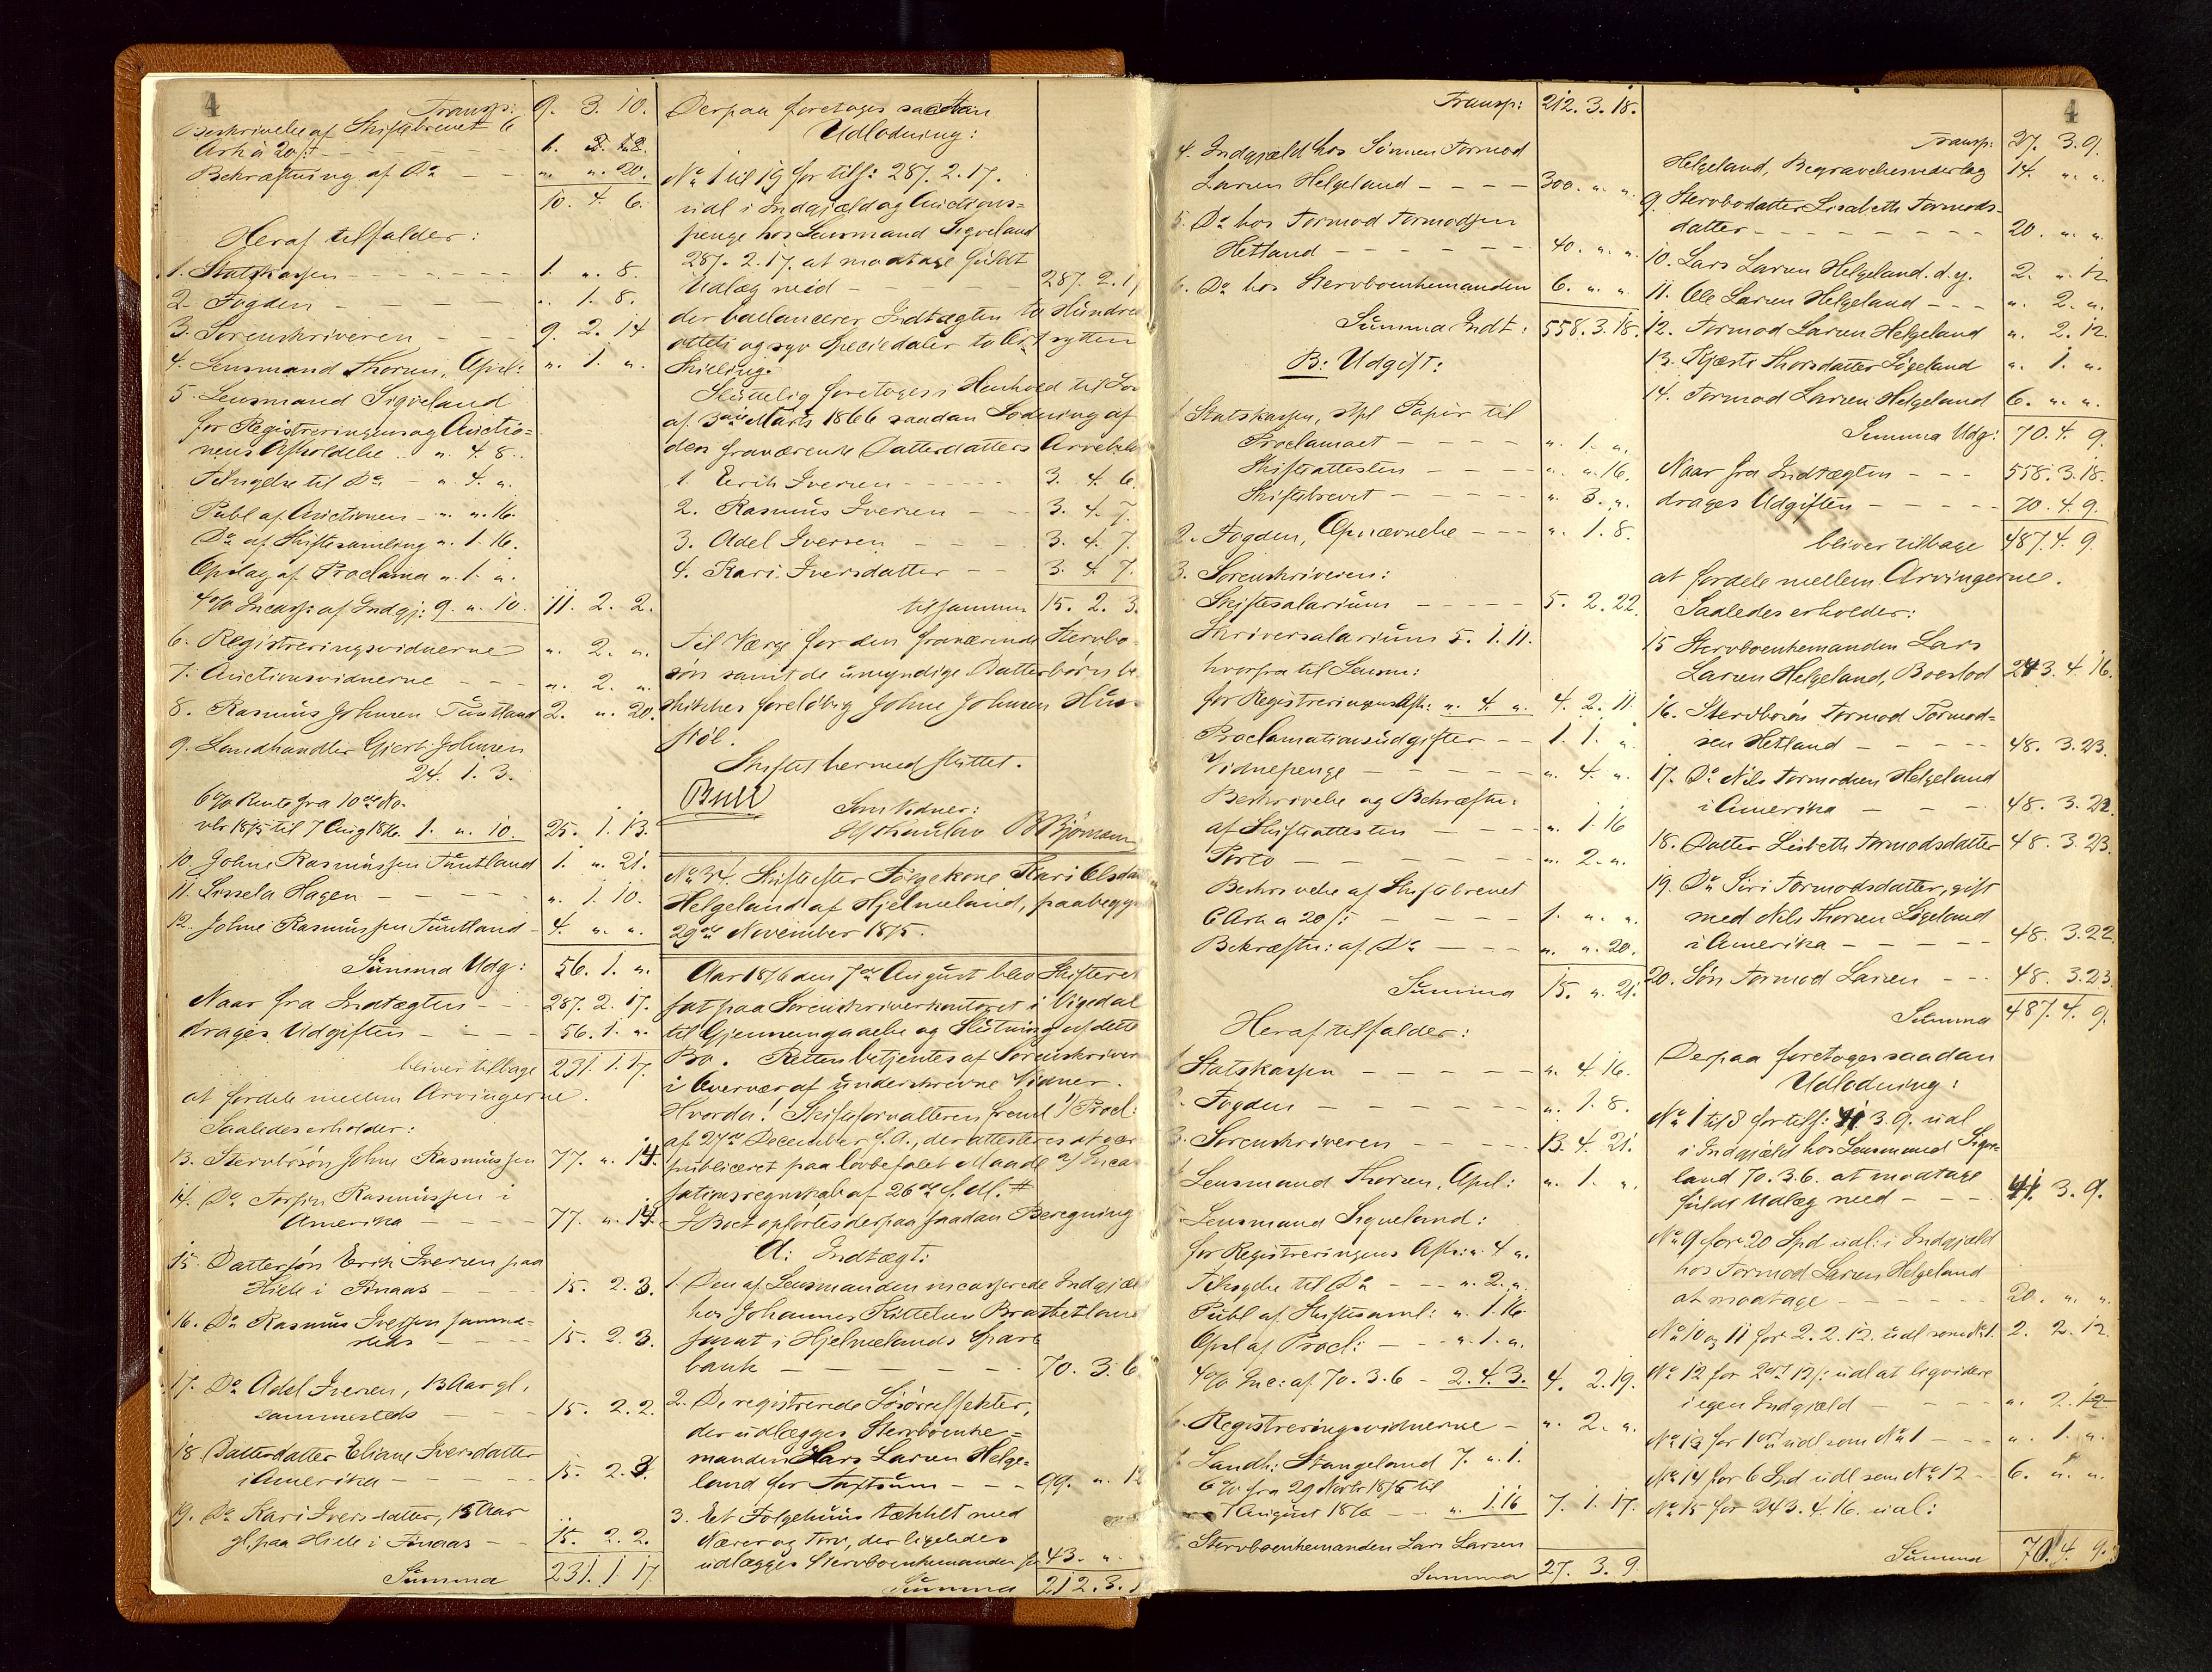 4
Transp: 9. 3. 10.
Beskrivelse af Skiftebrevet 6
Ark à 20 s: - - - 1.
Bekræftning af Do - - " " 20.
10. 4. 6.
Heraf tilfalder:
1. Statskassen - - - - - 1. " 8.
2. Fogden - - - - " 1. 8.
3. Sorenskriveren - - - 9. 2. 14
4. Lensmand Thorsen, Opsl: " 1. "
5. Lensmand Sigveland
for Registreringens og Auctio=
nens Afholdelse . " 4. 8.
Tilsigelse til Do - " 4. "
Publ af Auctionen - " " 16.
Do af Skiftesamling " 1. 16.
Opslag af Proclama " 1. "
4 % Incass: af Indgj: 9. " 10. 11. 2. 2.
6. Registreringsvidnerne " 2. "
7. Auctionsvidnerne - - - " 2. "
8. Rasmus Johnsen Tuntland 2. " 20.
9. Landhandler Gjert Johnsen
24. 1. 3.
6 % Rente fra 10de No-
vbr 1875 til 7 Aug 1876. 1. " 10. 25. 1. 13.
10. Johne Rasmussen Tuntland 1. " 21.
11. Sissela Hagen - - - " 1. 10.
12. Johne Rasmussen Tuntland - 4. " "
Summa Udg: 56. 1. "
Naar fra Indtægten - - 287. 2. 17.
drages Udgiften - - - 56. 1. "
bliver tilbage 231. 1. 17.
at fordele mellem Arvingerne.
Saaledes erholder:
13. Stervbosøn Johne Rasmussen 77. " 14.
14. Do Torfin Rasmussen i
Amerika - - - - 77. " 14.
15. Dattersøn Erik Iversen paa
Hiele i Anaas - - - 15. 2. 3.
16. Do Rasmus Iversen samme=
steds - - - 15. 2. 3.
17. Do Adel Iversen, 13 Aar gl.
sammesteds - - - 15. 2. 2.
18. Datterdatter Eliane Iversdatter
i Amerika - - - - 15. 2. 3.
19. Do Kari Iversdatter, 15 Aar
gl, paa Hiele i Aanaas - - 15. 2. 2.
Summa 231. 1. 17.
Derpaa foretages saadan
Udlodning:
No 1 til 19 for tils: 287. 2. 17.
udl i Indgjæld og Auctions=
penge hos Lensmand Sigveland
287. 2. 17. at modtage fuldt
Udlæg med - - - - 287. 2. 17
der ballancerer Indtægten to Hundre
otteti og syv Speciedaler to Ort sytten
Skilling.
Sluttelig foretoges i Henhold til Lov
af 3die Marts 1866 saadan Lodning af
den fraværende Datterdatters Arvelod
1. Erik Iversen - - - - - 3. 4. 6.
2. Rasmus Iversen - - - 3. 4. 7.
3. Adel Iversen - - - - 3. 4. 7.
4. Kari Iversdatter - - 3. 4. 7.
tilsammen 15. 2. 3.
Til Værge for den fraværende Stervbo
søn samt de umyndige Datterbørn be
skikkes foreløbig Johne Johnsen Hus
støl.
Skiftet hermed sluttet.
Bull
Som Vidner:
B Bjørnsen
No 34. Skifte efter Følgekone Kari Olsda
Helgeland af Hjelmeland, paabegyn
29de November 1875.
Aar 1876 den 7de August blev Skifteret
sat paa Sorenskriverkontoret i Vigedal
til Gjennemgaaelse og Slutning af dette
Bo. Retten betjentes af Sorenskriver
i Overvær af underskrevne Vidner.
Hvorda! Skifteforvalteren freml 1/ Procl:
af 27de December f. A., der attesteres at vær
publiceret paa lovbefalet Maade 2/ Incas
sationsregnskab af 26de f. M. #
I Boet opførtes derpaa saadan Beregning
A: Indtægt:
1. Den af Lensmanden incasserede Indgjæl
hos Johannes Kittelsen Brathetland
samt i Hjelmelands Spare
bank - - - - - 70. 3. 6
2. De registrerede Løsøreffekter,
der udlægges Stervboenke=
manden Lars Larsen Helge=
land for Taxtsum - - - 99. " 12
3. Et Følgehuus tækket med
Næver og Torv, der ligeledes
udlægges Stervboenkemanden for 43. "
Summa 212. 3. 1
Transp: 212. 3. 18.
4. Indgjæld hos Sønnen Tormod
Larsen Helgeland - - - - 300. " "
5. Do hos Tormod Tormodsen
Hetland - - - - - 40. " "
6. Do hos Stervboenkemanden 6. " "
Summa Indt: 558. 3. 18.
B: Udgift:
1 Statskassen, stpl Papir til
Proclamaet - - - - " 1. "
Skifteattesten - - - - " " 16.
Skiftebrevet - - - - - " 3. "
2. Fogden, Opnævnelse - - - " 1. 8.
3. Sorenskriveren:
Skiftesalarium - - - - 5. 2. 22.
Skriversalarium 5. 1. 11.
hvorfra til Lensm:
for Registreringens Afh: " 4. " 4. 2. 11.
Proclamationsudgifter - - 1. 1. "
Vidnepenge - - - - - " 4. "
Beskrivelse og Bekræftn:
af Skifteattesten - - - " 1. 16
Porto - - - - - - " 2. "
Beskrivelse af Skiftebrevet
6 Ark a 20 s: - - - - - 1. " "
Bekræftn: af Do - - - " " 20.
Summa 15. " 21.
Heraf tilfalder:
1 Statskassen - - - - - " 4. 16.
2. Fogden - - - - - - " 1. 8.
3. Sorenskriveren - - - - - 13. 4. 21.
4. Lensmand Thorsen, Opsl: " 1. "
5. Lensmand Sigveland:
for Registreringens Afh: " 4. "
Tilsigelse til Do - - - " 2. "
Publ af Skiftesaml: " 1. 16.
Opsl af Procl: - - " 1. "
4 % Inc: af 70. 3. 6 - 2. 4. 3. 4. 2. 19.
6. Registreringsvidnerne - " 2. "
7. Landh: Stangeland 7. " 1.
6 % fra 29 Novbr 1875 til
7 August 1876 - - " 1. 16 7. 1. 17.
8. Stervboenkemanden Lars Larsen
Summa 27. 3. 9
4
Transp: 27. 3. 9.
Helgeland, Begravelsesvederlag 14. " "
9. Stervbodatter Lisabeth Tormods-
datter - - - - - - - - 20. " "
10. Lars Larsen Helgeland. d. y. 2. " 12
11. Ole Larsen Helgeland - - - " 2. "
12. Tormod Larsen Helgeland " 2. 12.
13. Kjerste Thorsdatter Løgeland " 1. "
14. Tormod Larsen Helgeland 6. " "
Summa Udg: 70. 4. 9.
Naar fra Indtægten - - - 558. 3. 18.
drages Udgiften - - - - - 70. 4. 9.
bliver tilbage 487. 4. 9.
at fordele mellem Arvingerne.
Saaledes erholder:
15 Stervboenkemanden Lars
Larsen Helgeland, Boeslod 243. 4. 16.
16. Stervbosøn Tormod Tormod=
sen Hetland - - - - - 48. 3. 23.
17. Do Nils Tormodsen Helgeland
i Amerika - - - - 48. 3. 22.
18. Datter Lisbeth Tormodsdatter 48. 3. 23.
19. Do Siri Tormodsdatter, gift
med Nils Thorsen Løgeland
i Amerika - - - - - 48. 3. 22
20. Søn Tormod Larsen - - - 48. 3. 23
Summa 487. 4. 9.
Derpaa foretoges saadan
Udlodning:
No 1 til 8 for tils: 41. 3. 9. udl
i Indgjæld hos Lensmand Sigve-
land 70. 3. 6. at modtage
fuldt Udlæg med - - - 41. 3. 9.
No 9 for 20 Spd udl: i Indgjæld
hos Tormod Larsen Helgeland
at modtage - - - - - - 20. " "
No 10 og 11 for 2. 2. 12. udl som No 1. 2. 2. 12
No 12 for 2 ort 12 s: udl at liqvidere
i egen Indgjæld - - - - " 2. 12
No 13 for 1 ort udl som No 1 - - - " 1. "
No 14 for 6 Spd udl som No 12 - - 6. " "
No 15 for 243. 4. 16. udl:
Summa 70. 4. 9.